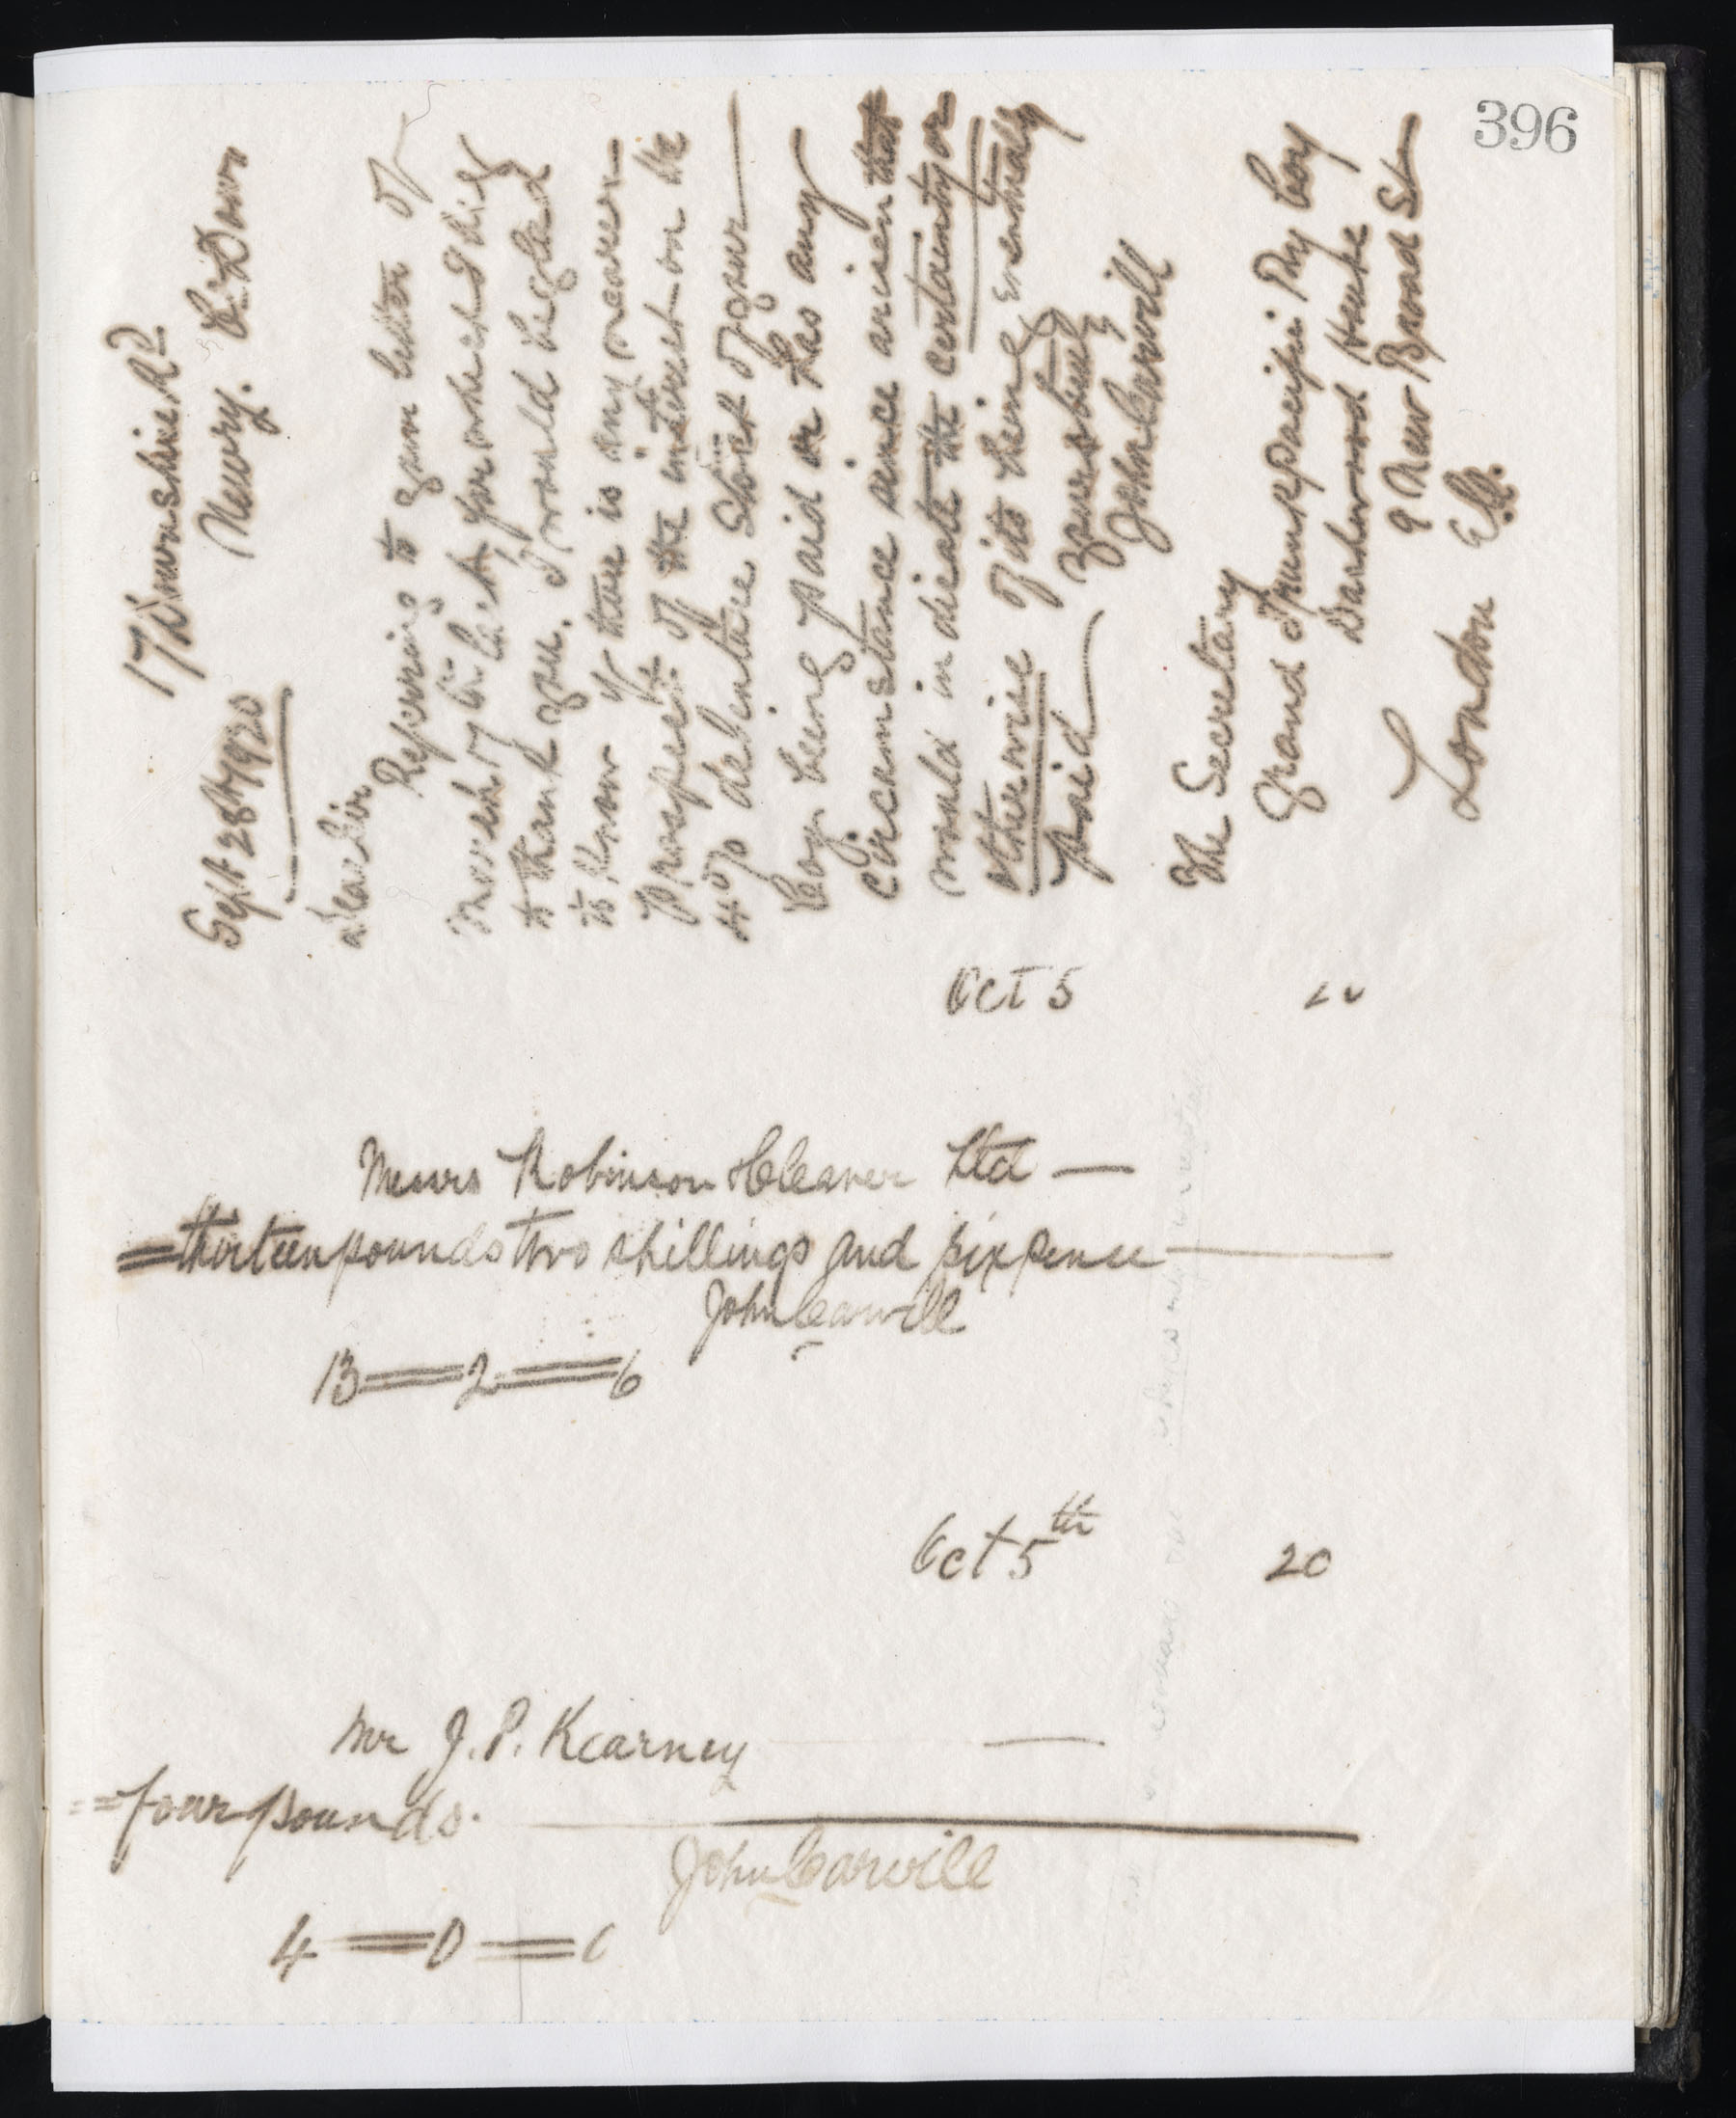 396
17 Downshire Rd
Newry. Co. Down
Sept 28th 1920
Dear Sir
Referring to your letter of
March 17th last for which I beg
to thank you. I would be glad
to know if there is any nearer
prospect of the interest on the
4% debenture Stock of your
Coy being paid or has any
circumstance since arisen that
would indicate the certainty or
otherwise of its being eventually
paid
Yours truly
John Carvill
The Secretary
Grand Trunk pacific Rly Coy
Dashwood House
9 New Broad St
London E.C.
Oct 5 20
Messrs Robinson & Cleaver Ltd —
=thirteen pounds two shillings and six pence
John Carvill
13=2=6
Oct 5th 20
Mr J. P. Kearney —
=four pounds.
John Carvill
4=0=0